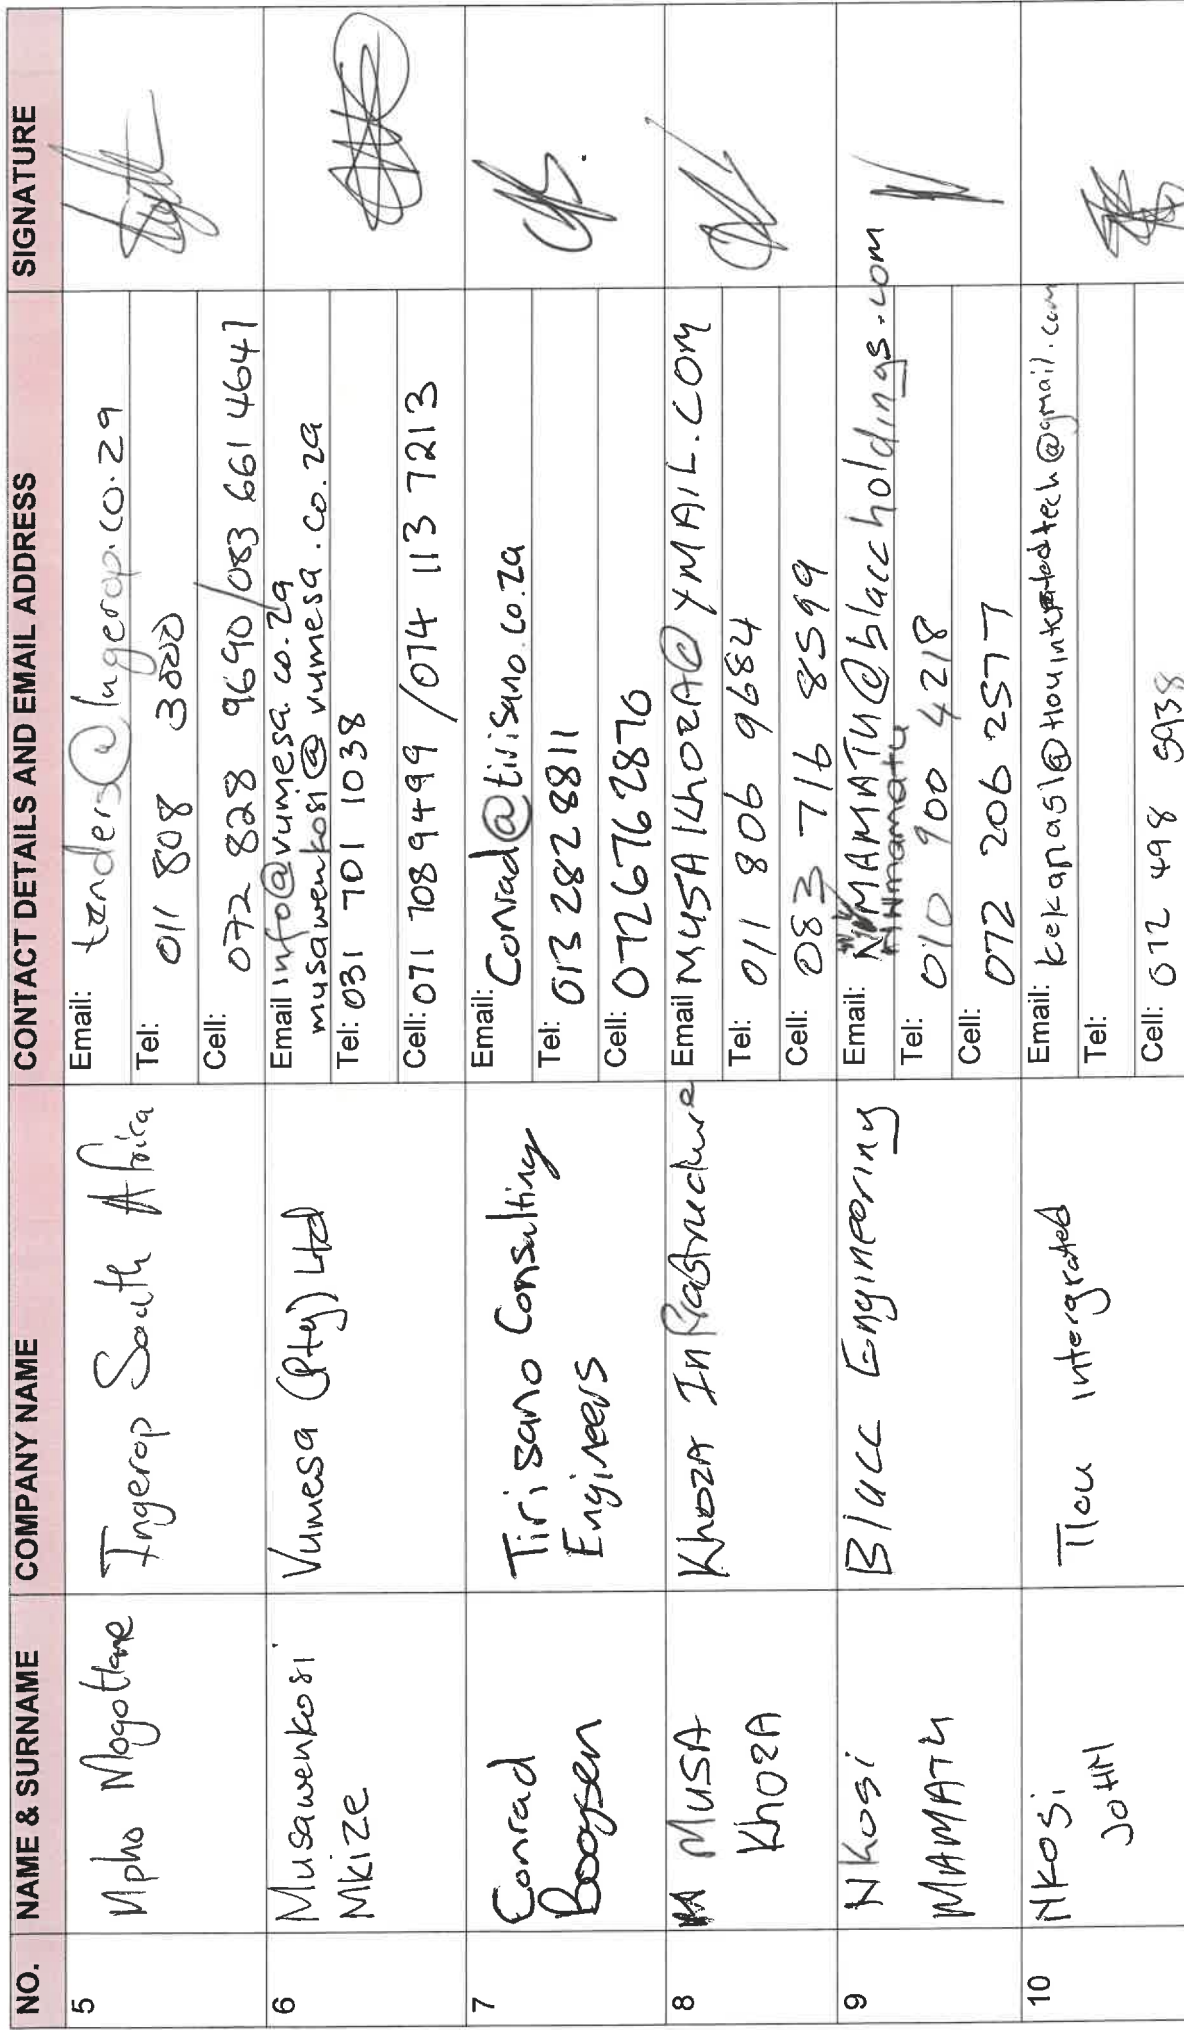 NO. NAME & SURNAME COMPANY NAME CONTACT DETAILS AND EMAIL ADDRESS SIGNATURE
5 Mpho Mogotlane Ingerop South Africa
Email: tenders@Ingerop.co.za
Tel: 011 808 3000
Cell: 072 828 9690/083 661 4641
6 Musawenkosi
Mkize
Vumesa (Pty) Ltd
Email info@vumesa.co.za
musawenkosi@vumesa.co.za
Tel: 031 701 1038
Cell: 071 7089499 /074 113 7213
7 Conrad
Booysen
Tirisano Consulting
Engineers
Email: Conrad@tirisano.co.za
Tel: 013 282 8811
Cell: 0726762870
8 MUSA
KhOZA
KhOZA Infrastructure
Email MUSAKhOZA@YMAIL.COM
Tel: 011 806 9684
Cell: 083 716 8599
9 NKosi
MAMATU
Blacc Engineering
Email: MAMATU@blaccholdings.com
Nmamatu
Tel: 010 900 4218
Cell: 072 206 2577
10 NKosi
JOHN
Tlou Intergrated
Email:
Tel:
Cell: 072 498 5938